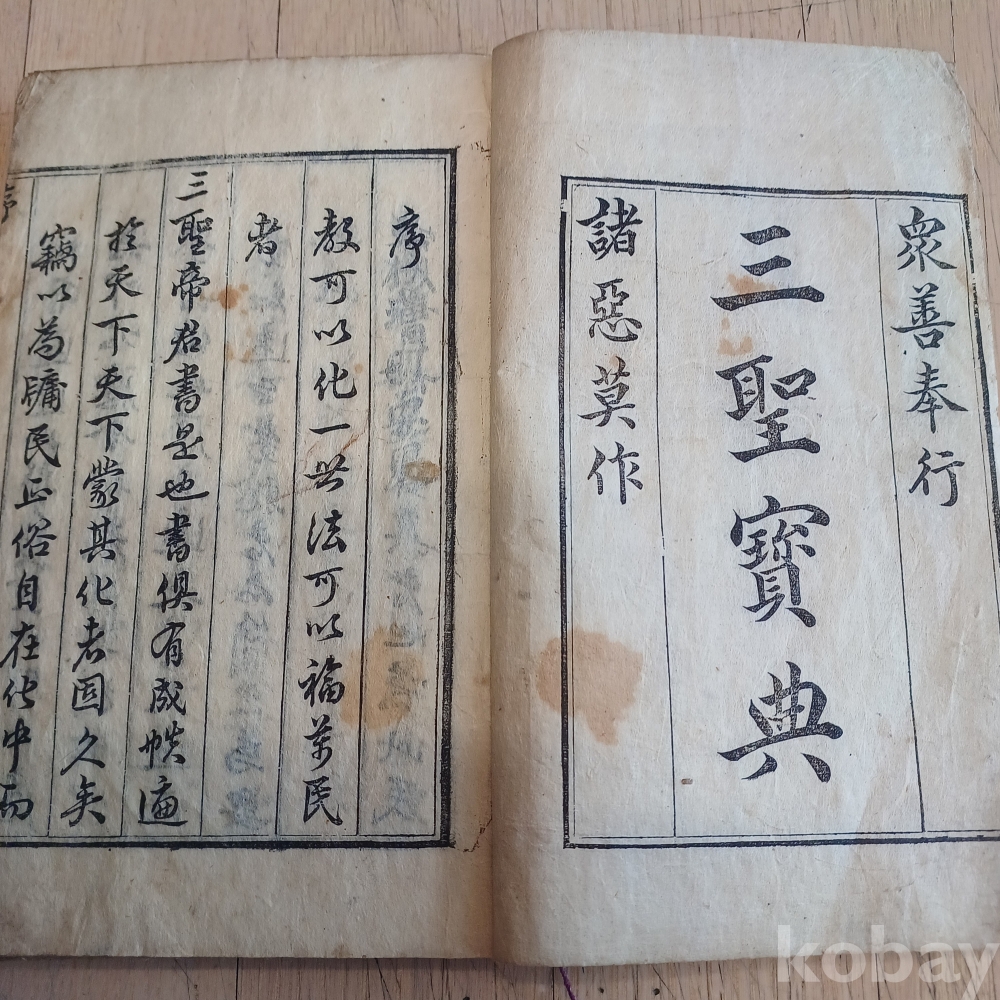 衆善奉行
三聖寶典
諸惡莫作
序
教可以化一世法可以福萬民
者
三聖帝君書是也書俱有成帙遍
於天下天下蒙其化者固久矣
竊以為牖民正俗自在化中而
序
kobay